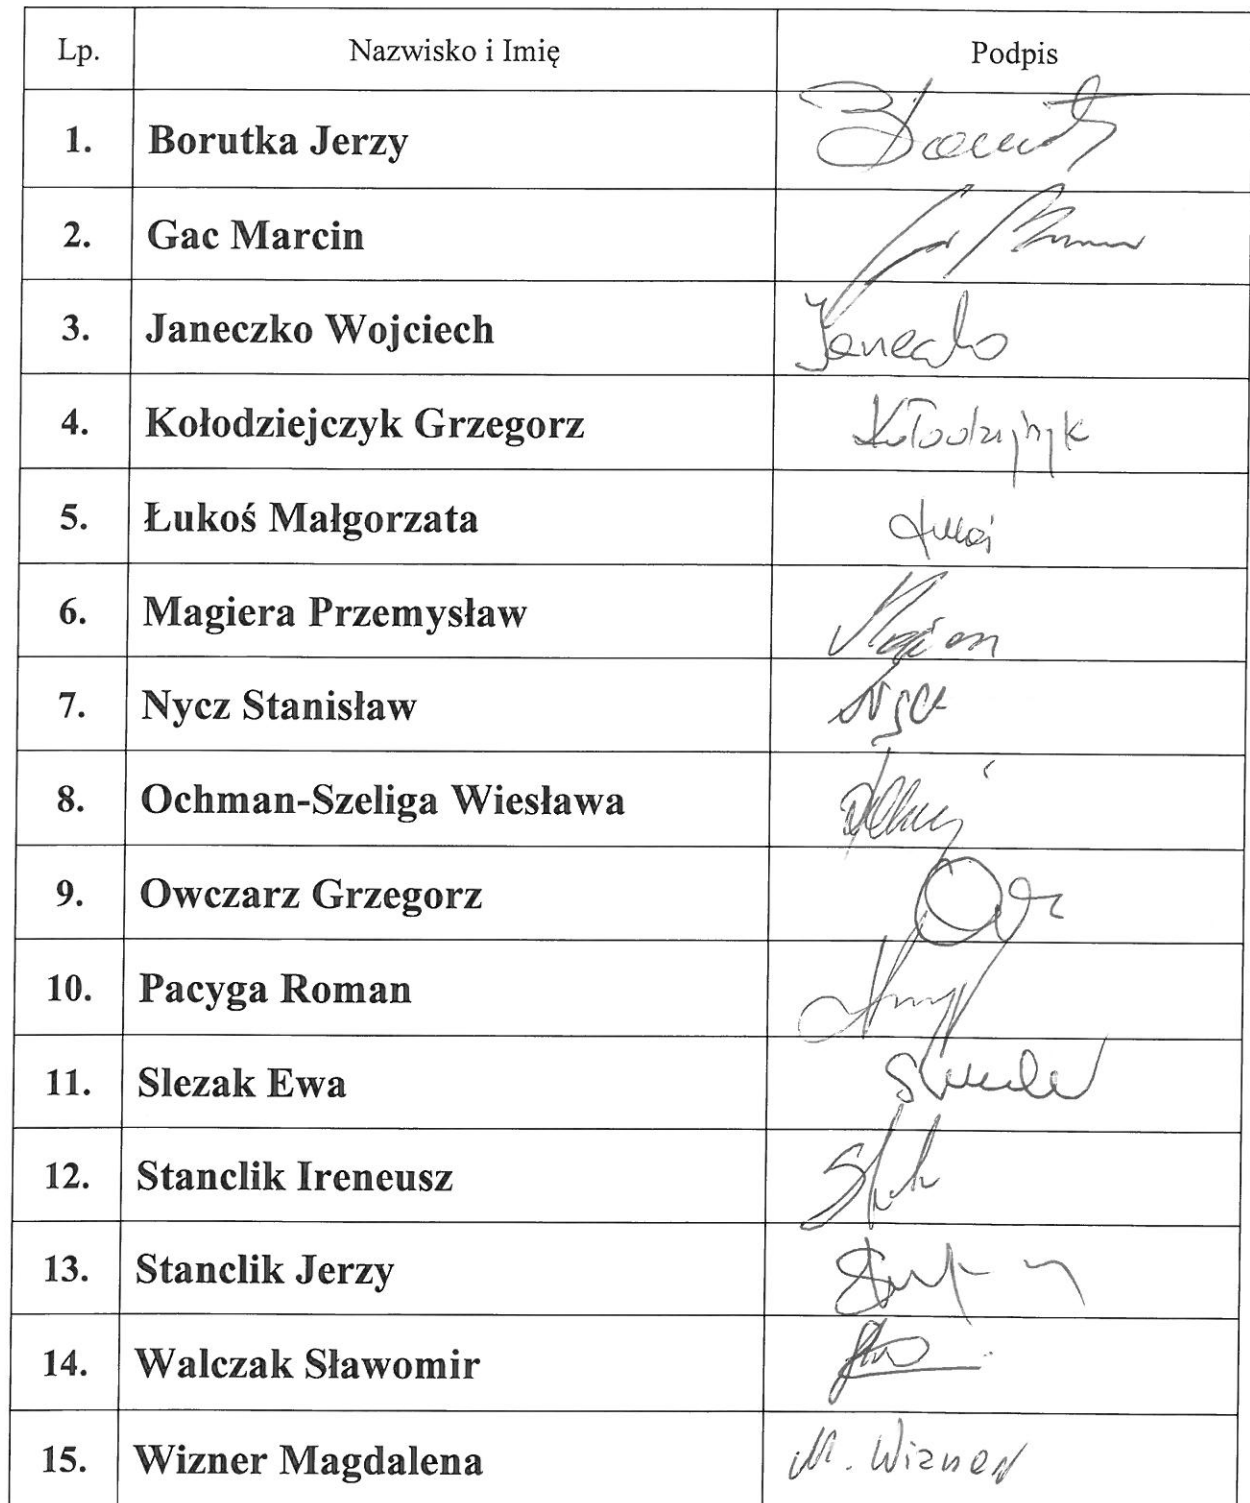 Lp. Nazwisko i Imię Podpis
1. Borutka Jerzy
2. Gac Marcin
3. Janeczko Wojciech Janeczko
4. Kołodziejczyk Grzegorz Kołodziejczyk
5. Łukoś Małgorzata Łukoś
6. Magiera Przemysław
7. Nycz Stanisław
8. Ochman-Szeliga Wiesława
9. Owczarz Grzegorz
10. Pacyga Roman
11. Slezak Ewa
12. Stanclik Ireneusz
13. Stanclik Jerzy
14. Walczak Sławomir
15. Wizner Magdalena M. Wizner